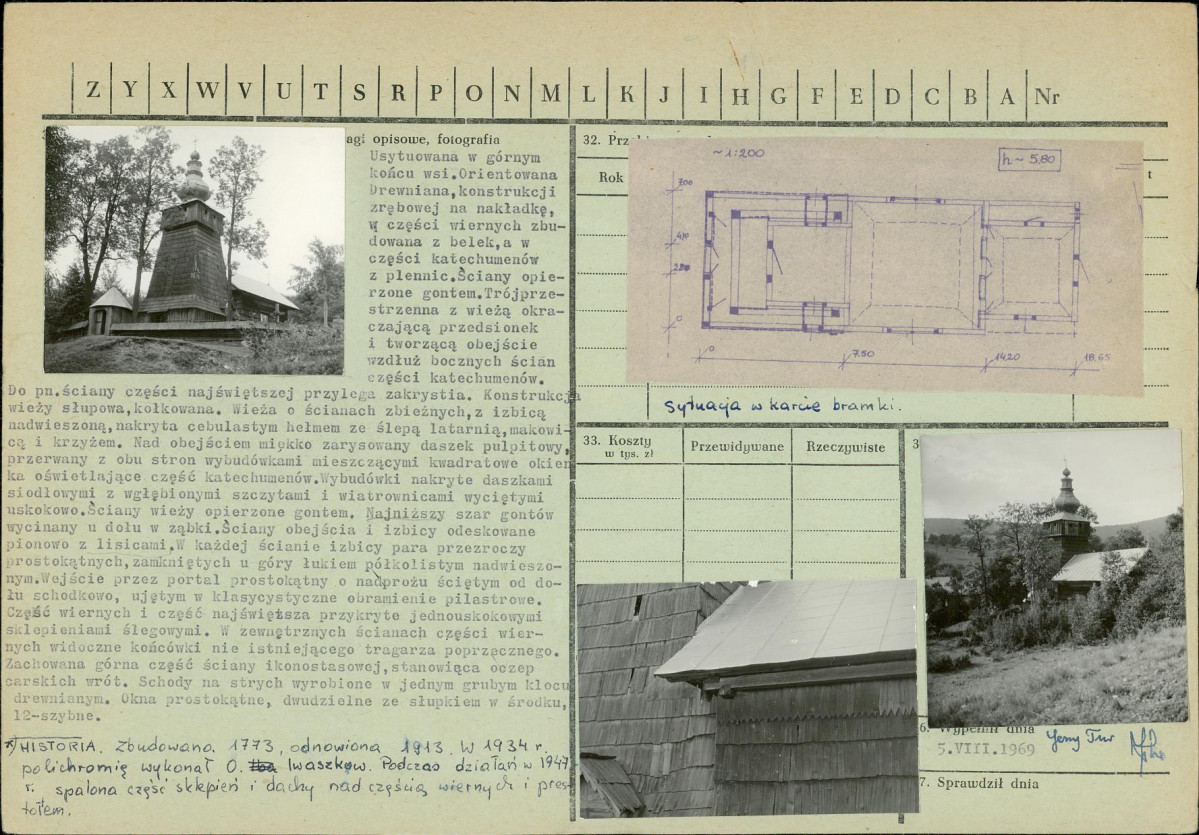 Z Y X W V U T S R P O N M L K J I H G F E D C B A Nr
agi opisowe, fotografia
Usytuowana w górnym
końcu wsi.Orientowana
Drewniana,konstrukcji
zrębowej na nakładkę,
w części wiernych zbu-
dowana z belek,a w
części katechumenów
z płennic.Ściany opie-
rzone gontem.Trójprze-
strzenna z wieżą okra-
czającą przedsionek
i tworzącą obejście
wzdłuż bocznych ścian
części katechumenów.
Do pn.ściany części najświętszej przylega zakrystia. Konstrukcja
wieży słupowa,kołkowana. Wieża o ścianach zbieżnych,z izbicą
nadwieszoną,nakryta cebulastym hełmem ze ślepą latarnią,makowi-
cą i krzyżem. Nad obejściem miękko zarysowany daszek pulpitowy,
przerwany z obu stron wybudówkami mieszczącymi kwadratowe okien
ka oświetlające część katechumenów.Wybudówki nakryte daszkami
siodłowymi z wgłębionymi szczytami i wiatrownicami wyciętymi
uskokowo.Ściany wieży opierzone gontem. Najniższy szar gontów
wycinany u dołu w ząbki.Ściany obejścia i izbicy odeskowane
pionowo z lisicami,W każdej ścianie izbicy para przezroczy
prostokątnych,zamkniętych u góry łukiem półkolistym nadwieszo-
nym.Wejście przez portal prostokątny o nadprożu ściętym od do-
łu schodkowo, ujętym w klasycystyczne obramienie pilastrowe.
Część wiernych i część najświętsza przykryte jednouskokowymi
sklepieniami ślegowymi. W zewnętrznych ścianach części wier-
nych widoczne końcówki nie istniejącego tragarza poprzęcznego.
Zachowana górna część ściany ikonostasowej,stanowiąca oczep
carskich wrót. Schody na strych wyrobione w jednym grubym klocu
drewnianym. Okna prostokątne, dwudzielne ze słupkiem w środku,
12-szybne.
x) HISTORIA. Zbudowana 1773, odnowiona 1913. W 1934 r.
polichromię wykonał O. Iwaszkow. Podczas działań w 1947
r. spalona część sklepień i dachy nad częścią wiernych i pres-
tołem.
32. Prz
Rok
t
~ 1:200
h ~ 5,80
7,00
4,10
0
0
7.50
14.20
18.65
sytuacja w karcie bramki.
33. Koszty
w tys. zł
Przewidywane
Rzeczywiste
3
6. Wypełnił dnia
5.VIII.1969
7. Sprawdził dnia